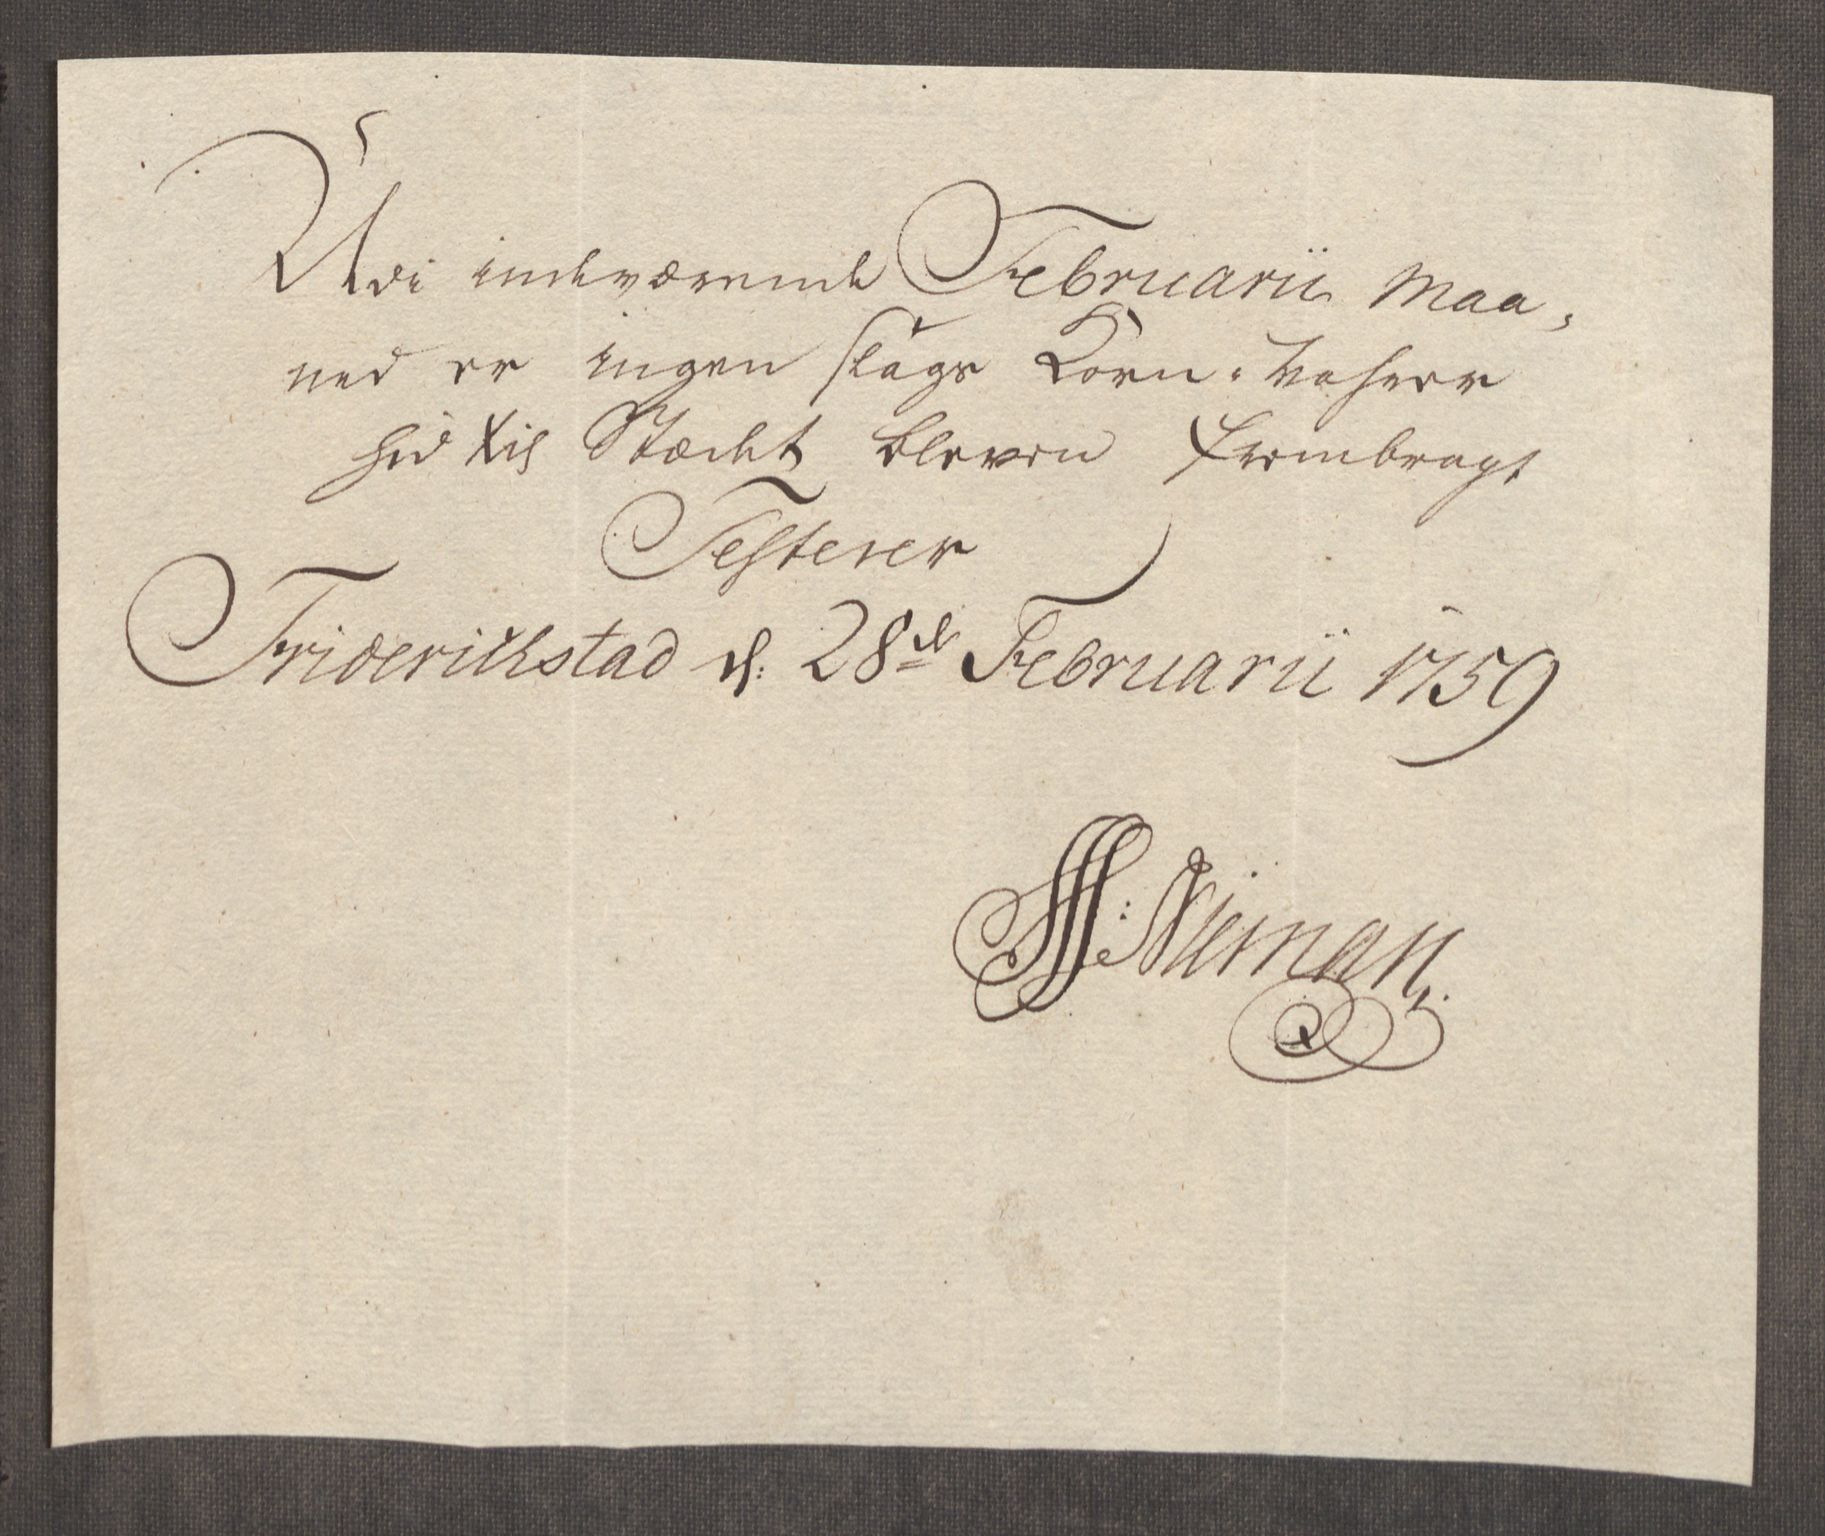 Udi indeværende Februarii Maa,
ned er ingen slags Korn-Vahrer
hid til Stædet bleven frembragt
Testerer
Friderichstad d: 28de Februarii 1759
Niiman